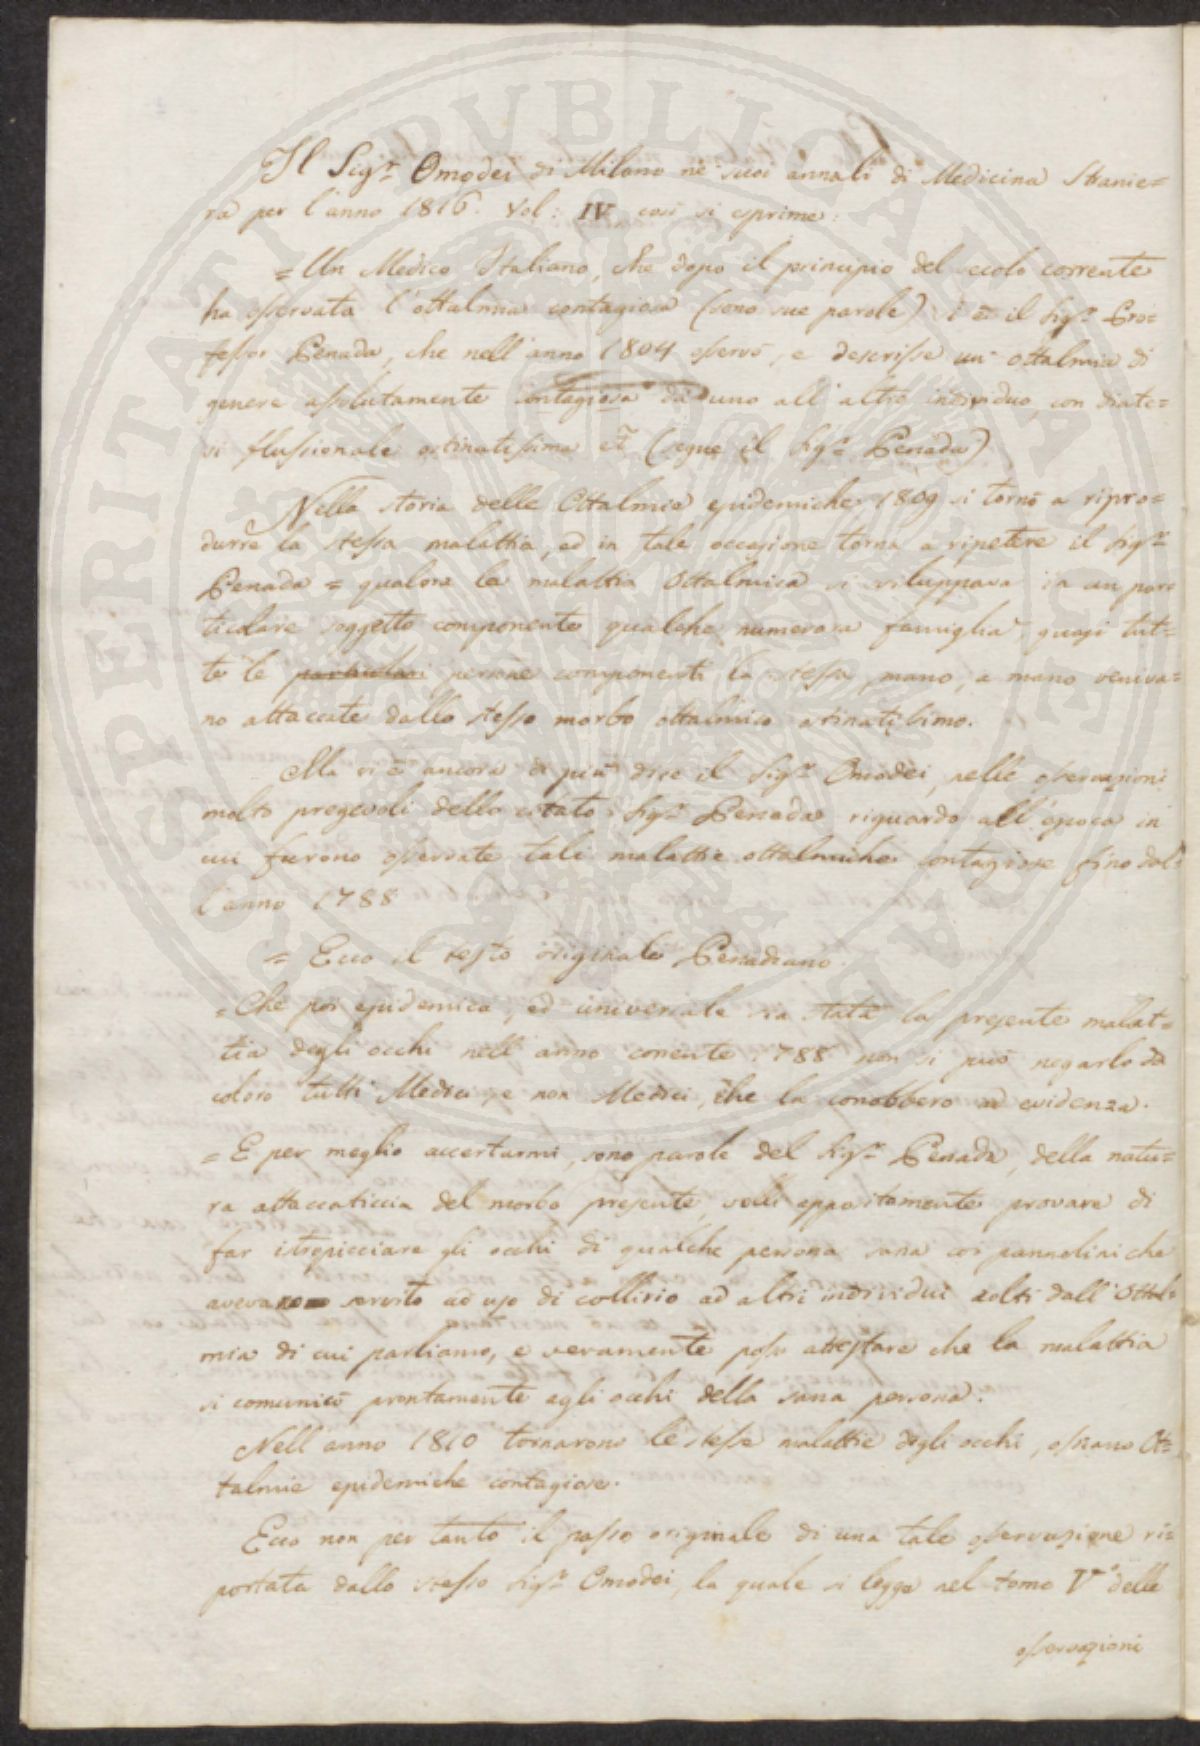 Il Sigr. Omodei di Milano ne' suoi annali di Medicina Stranie=
ra per l'anno 1816. Vol: IV così si esprime:
= Un Medico Italiano, che dopo il principio del secolo corrente
ha osservata l'ottalmia contagiosa (sono sue parole) si è il Sigr. Pro=
fessor Penada, che nell'anno 1804 osservò, e descrisse un'ottalmia di
genere assolutamente contagiosa da uno all'altro individuo, con diate=
si flussionale ostinatissima etc (segue il Sigr. Penada)
Nella storia delle Ottalmie epidemiche 1809 si tornò a ripro=
durre la stessa malattia, ed in tale occasione torna a ripetere il Sigr.
Penada = qualora la malattia Ottalmica si sviluppava in un par=
ticolare soggetto componente qualche numerosa famiglia, quasi tut=
te le particolari persone componenti la stessa, mano, a mano veniva=
no attaccate dallo stesso morbo ottalmico ostinatissimo.
Ma vi è ancora di più dice il Sigr. Omodei, nelle osservazioni
molto pregevoli dello citato Sigr. Penada riguardo all'epoca in
cui furono osservate tali malattie ottalmiche contagiose fino dal=
l'anno 1788
= Ecco il testo originale Penadiano.
= Che poi epidemica, ed universale sia stata la presente malat=
tia degli occhi nell'anno corrente 1788 non si può negarlo da
coloro tutti Medici, e non Medici, che la conobbero ad evidenza.
= E per meglio accertarmi, sono parole del Sigr. Penada, della natu=
ra attaccaticcia del morbo presente, volli appositamente provare di
far istropicciare gli occhi di qualche persona sana coi pannolini che
avevano servito ad uso di collirio ad altri individui colti dall'Ottal=
mia di cui parliamo, e veramente posso attestare che la malattia
si comunicò prontamente agli occhi della sana persona.
Nell'anno 1810 tornarono le stesse malattie degli occhi, ossiano Ot=
talmie epidemiche contagiose.
Ecco non per tanto il passo originale di una tale osservazione ri=
portata dallo stesso Sigr. Omodei, la quale si legge nel tomo Vo. delle
osservazioni
SPERITATI PUBLICAE